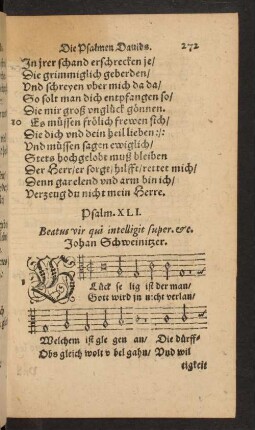 Die Psalmen Dauids. 272
In jrer schand erschrecken je/
Die grimmiglich geberden/
Vnd schreyen vber mich da da/
So solt man dich entpfangen so/
Die mir groß vnglück gönnen.
10 Es müssen frölich frewen sich/
Die dich vnd dein heil lieben :/:
Vnd müssen sagen ewiglich/
Stets hochgelobt muß bleiben
Der Herr/er sorgt/hilfft/rettet mich/
Denn gar elend vnd arm bin ich/
Verzeug du nicht mein Herre.
Psalm. XLI.
Beatus vir qui intelligit super. &c.
Johan Schweinitzer.
Glück se lig ist der man/
Gott wird jn nicht verlan/
Welchem ist gle gen an/ Die dürff-
Obs gleich wolt v bel gahn/ Vnd wil
tigkeit